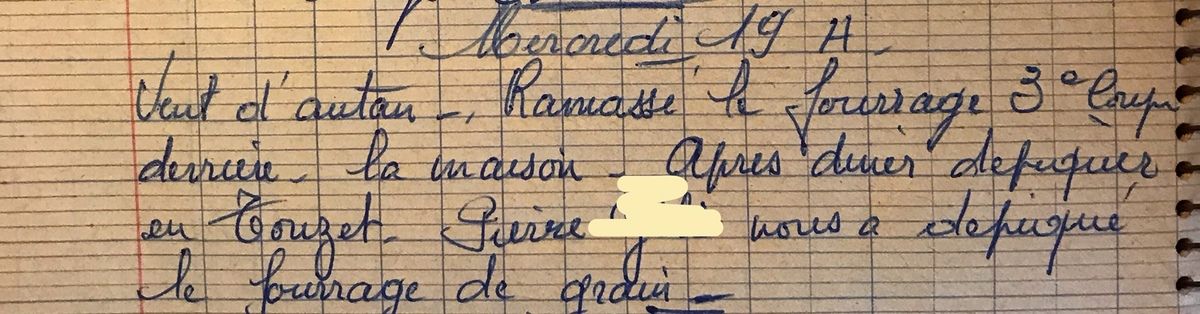 Mercredi 19 A -
Vent d'autan -, Ramassé le fourrage 3e Coupe
derrière la maison - Après diner depiquer
en Touzet - Pierre nous a depiqué
le fourrage de grain -